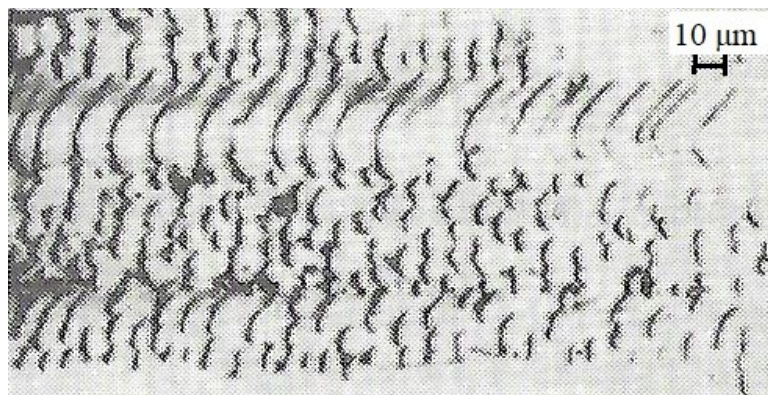 10 μm